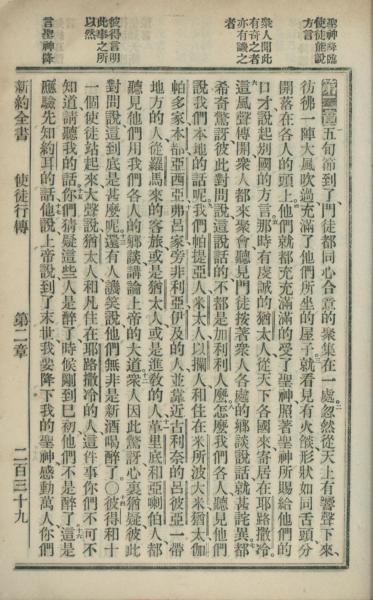 聖神降臨
使徒能說
方言
衆人聞此
有奇之者
亦有譏之
者
彼得言明
此事之所
以然
言聖神降
五旬節到了、門徒都同心合意的聚集在一處、忽然從天上有響聲下來、
彷彿一陣大風吹過、充滿了他們所坐的屋子、就看見有火燄形狀如同舌頭、分
開落在各人的頭上、他們就都充充滿滿的受了聖神、照著聖神所賜給他們的
口才、說起別國的方言、那時有虔誠的猶太人、從天下各國來寄居在耶路撒冷、
這風聲傳開、衆人都來聚會、聽見門徒按著衆人各處的鄉談說話、就甚詫異、都
希奇驚訝、彼此對問說、這說話的不都是加利利人麼、怎麼我們各人聽見他們
說我們本地的話呢、我們帕提亞人、米太人、以攔人、和住在米所波大米、猶太、伽
帕多家、本都、亞西亞、弗呂家、旁非利亞、伊及的人、並靠近古利奈的呂彼亞一帶
地方的人、從羅馬來的客旅、或是猶太人、或是進教的人、革里底和亞喇伯人、都
聽見他們用我們各人的鄉談、講論上帝的大道、衆人因此驚訝、心裏猶疑、彼此
對問說、這到底是甚麼呢、還有人譏笑說、他們無非是新酒喝醉了○彼得和十
一個使徒站起來、大聲說、猶太人和凡住在耶路撒冷的人、這件事你們不可不
知道、請聽我的話、你們猜疑這些人是醉了、時候剛到巳初、他們不是醉了、這是
應驗先知約耳的話、他說、上帝說、到了末世、我要降下我的聖神、感動萬人、你們
新約全書 使徒行傳 第二章 二百三十九